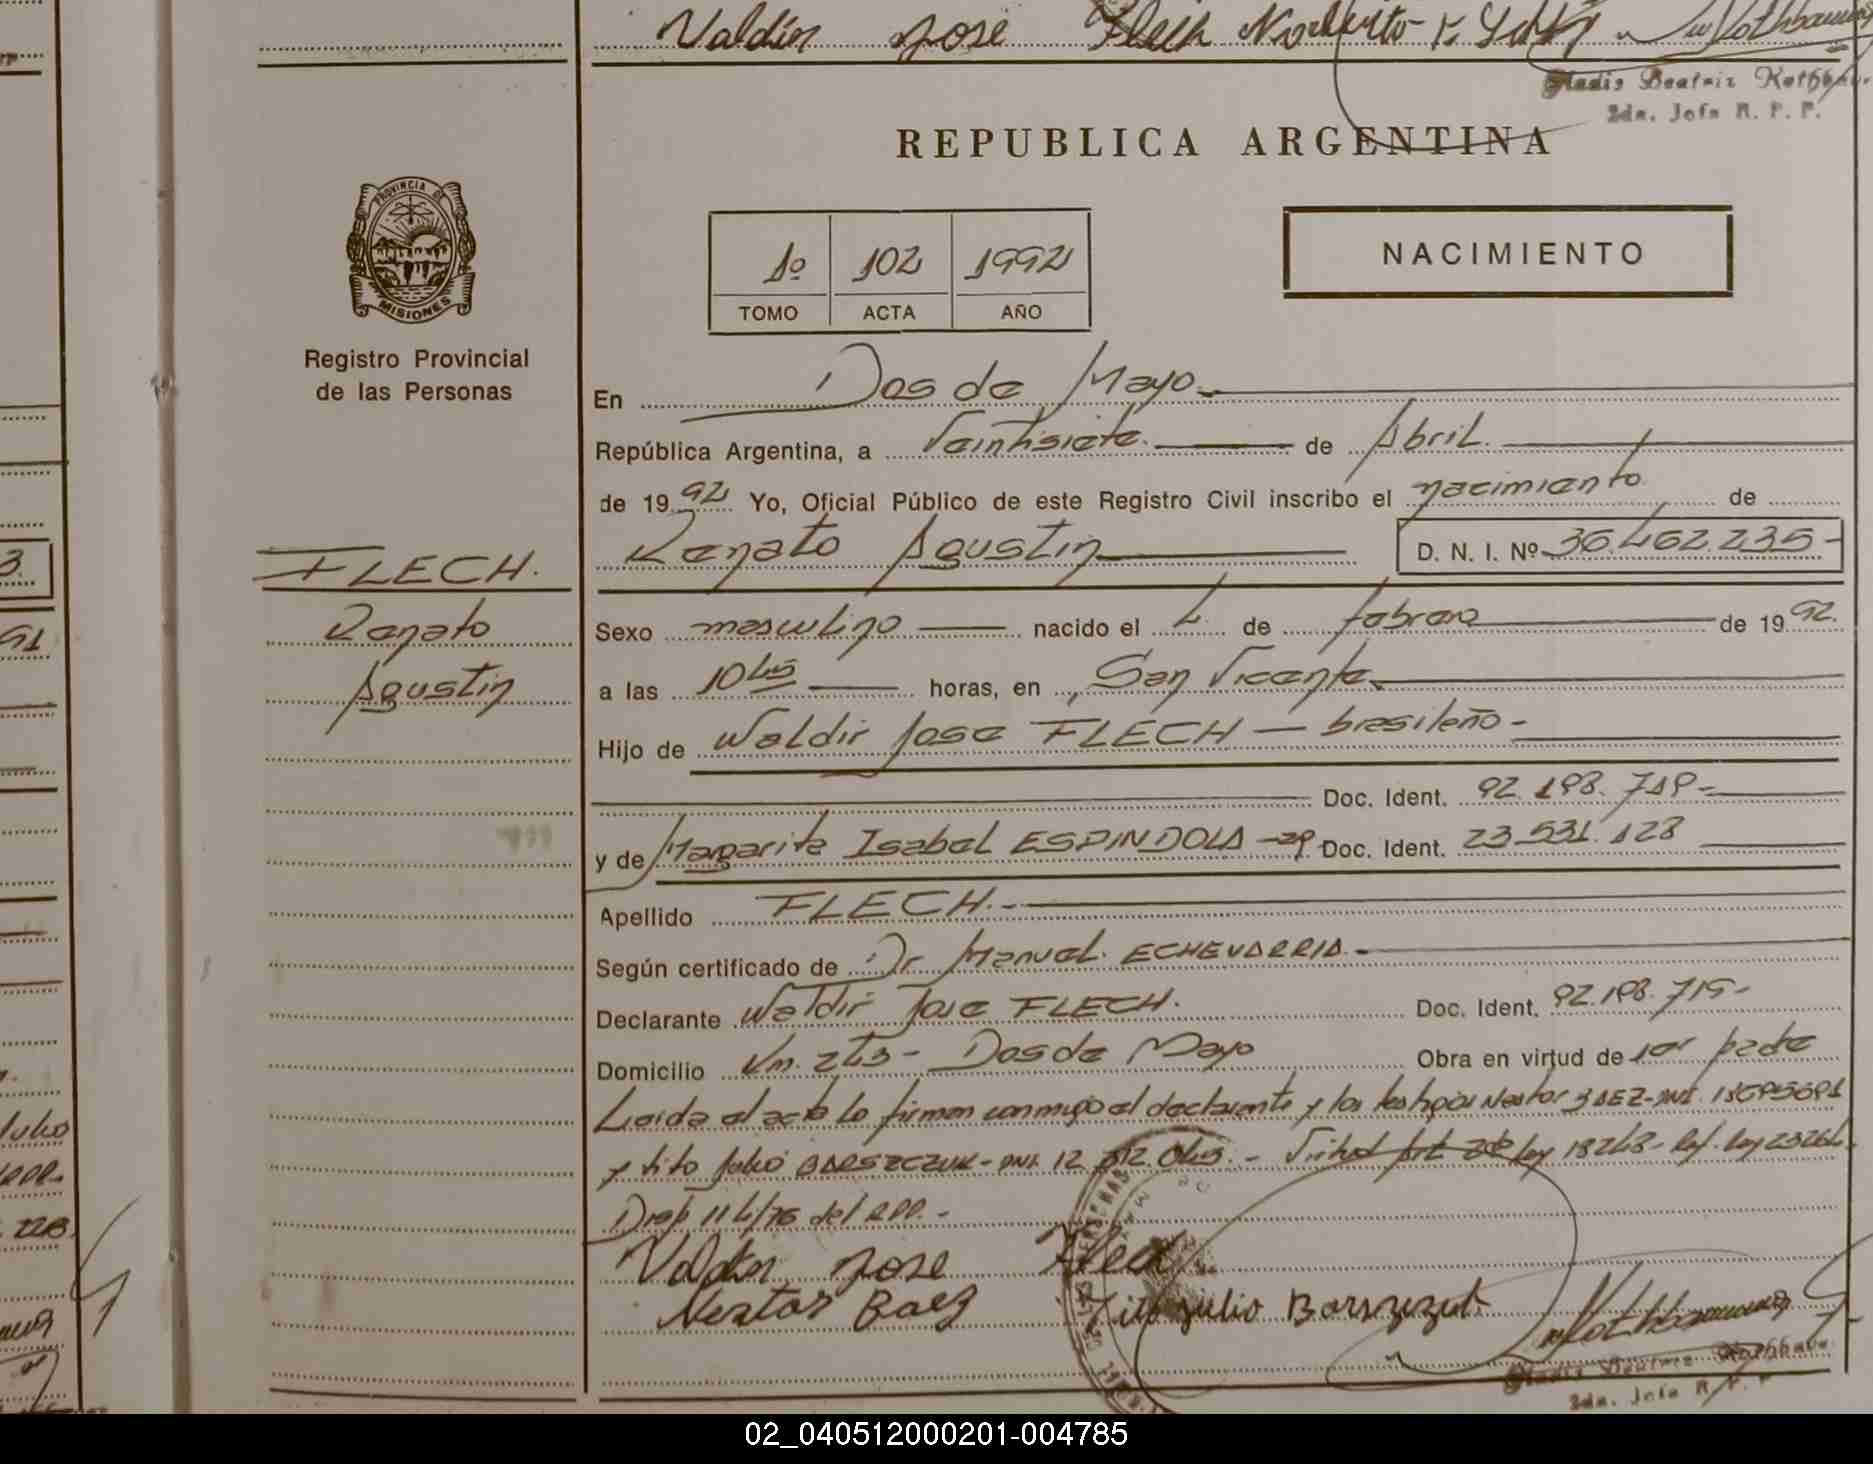 Valdir Jose Flech Norberto
Gladis Beatriz Rothbaue
2da. Jefa R. P. P.
REPUBLICA ARGENTINA
PROVINCIA DE
MISIONES
Registro Provincial
de las Personas
1º 102 1992
TOMO ACTA AÑO
NACIMIENTO
En Dos de Mayo
República Argentina, a Veintisiete de Abril
de 1992 Yo, Oficial Público de este Registro Civil inscribo el nacimiento de
Renato Agustin D. N. I. Nº 36.462.235-
FLECH.
Renato
Agustin
Sexo masculino nacido el 4 de febrero de 1992.
a las 10 45 horas, en San Vicente
Hijo de Waldir Jose FLECH - brasileño -
Doc. Ident. 92.198.719-
y de Margarita Isabel ESPINDOLA - Doc. Ident. 23.531.128
Apellido FLECH.-
Según certificado de Dr Manuel ECHEVARRIA -
Declarante Waldir Jose FLECH. Doc. Ident. 92.198.719-
Domicilio Km. 243 - Dos de Mayo Obra en virtud de ser padre
Leida el acta lo firman conmigo el declarante y los testigos Nestor BAEZ-DNI.
y Tito Julio BARSZCZUK - DNI. 12 - Virtud Art. ley 18248- Ref. ley 23264
Disp 114/76 del RPP.-
Valdir Jose Flech
Nestor Baez Tito julio Barszczuk
Gladis Beatriz Rothbaue
2da. Jefa R. P. P
02_040512000201-004785